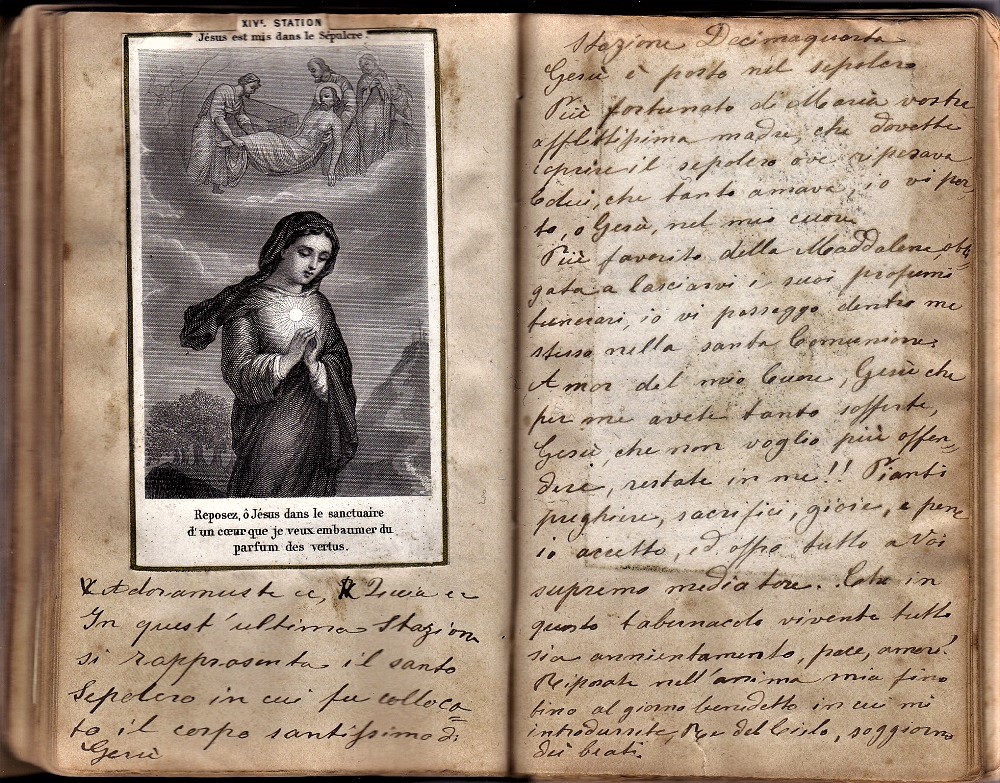 XIVe. STATION
Jésus est mis dans le Sépulcre.
Reposez, ô Jésus dans le sanctuaire
d'un cœur que je veux embaumer du
parfum des vertus.
℣ Adoramuste ec, ℟ Quia ec
In quest'ultima Stazione
si rappresenta il santo
Sepolcro in cui fu colloca=
to il corpo santissimo di
Gesù
Stazione Decimaquarta
Gesù è posto nel sepolcro
Più fortunato di Maria vostra
afflittissima madre, che dovette
coprire il sepolcro ove riposava
Colui, che tanto amava, io vi por,
to, o Gesù, nel mio cuore
Più favorito della Maddalena, obbli
gata a lasciarvi i suoi profumi
funerari, io vi posseggo dentro me
stesso nella santa Comunione.
Amor del mio Cuore, Gesù che
per me avete tanto sofferto,
Gesù, che non voglio più offen-
dere, restate in me!! Pianti
preghiere, sacrifici, gioie, e pene
io accetto, ed offro tutto a Voi
supremo mediatore. Che in
questo tabernacolo vivente tutto
sia annientamento, pace, amore!
Riposate nell'anima mia fino
fino al giorno benedetto in cui mi
introdurrete, Re del Cielo, soggiorno
dei beati.